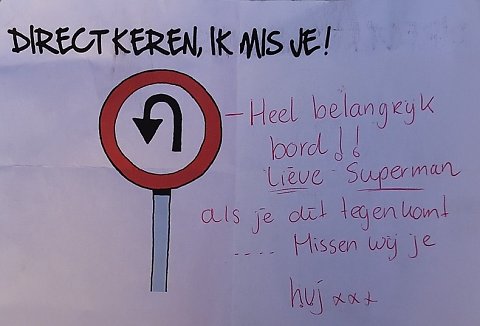 DIRECT KEREN, IK MIS JE!
- Heel belangryk
bord!!
Lieve Superman
als je dit tegenkomt
.... Missen wy je
huj xxx